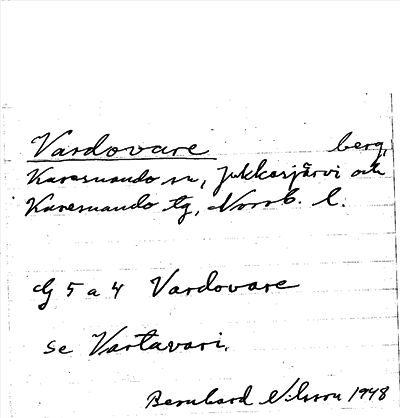 Vardovare berg,
Karesuando sn, Jukkasjärvi och
Karesuando tg, Norrb. l.
G 5 a 4 Vardovare
se Vartavari.
Bernhard Nilsson 1948